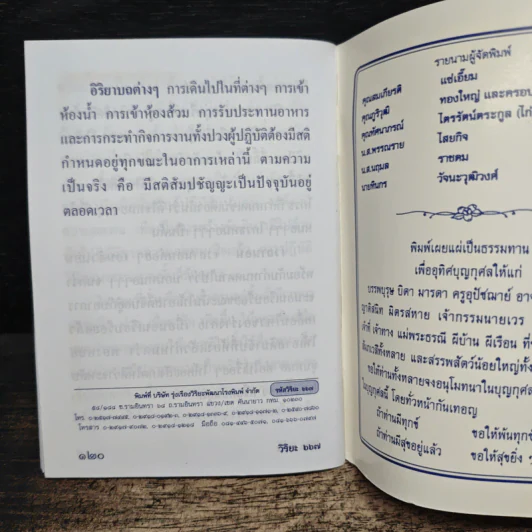 อิริยาบถต่างๆ การเดินไปในที่ต่างๆ การเข้า
ห้องน้ำ การเข้าห้องส้วม การรับประทานอาหาร
และการกระทำกิจการงานทั้งปวงผู้ปฏิบัติต้องมีสติ
กำหนดอยู่ทุกขณะในอาการเหล่านี้ ตามความ
เป็นจริง คือ มีสติสัมปชัญญะเป็นปัจจุบันอยู่
ตลอดเวลา
พิมพ์ที่ บริษัท รุ่งเรืองวิริยะพัฒนาโรงพิมพ์ จำกัด
รหัสวิริยะ ๖๖๗
โทร.
โทรสาร
มือถือ
๑๒๐
วิริยะ ๖๖๗
รายนามผู้จัดพิมพ์
คุณสมเกียรติ แซ่เอี้ยม
คุณภูริวุฒิ ทองใหญ่ และครอบ
คุณทัศนาภรณ์ ไตรรัตน์ตระกูล (ไก่
น.ส.พรรณราย ไสยกิจ
น.ส.นฤมล ราชคม
นายทินกร วัจนะวุฒิวงศ์
พิมพ์เผยแผ่เป็นธรรมทาน
เพื่ออุทิศบุญกุศลให้แก่
บรรพบุรุษ บิดา มารดา ครูอุปัชฌาย์ อาจ
ญาติสนิท มิตรสหาย เจ้ากรรมนายเวร
เจ้าที่ เจ้าทาง แม่พระธรณี ผีบ้าน ผีเรือน ที่
สัมภเวสีทั้งหลาย และสรรพสัตว์น้อยใหญ่ทั้ง
ขอให้ท่านทั้งหลายจงอนุโมทนาในบุญกุศล
ในบุญกุศลนี้ โดยทั่วหน้ากันเทอญ
ถ้าท่านมีทุกข์ ขอให้พ้นทุกข์
ถ้าท่านมีสุขอยู่แล้ว ขอให้สุขยิ่ง